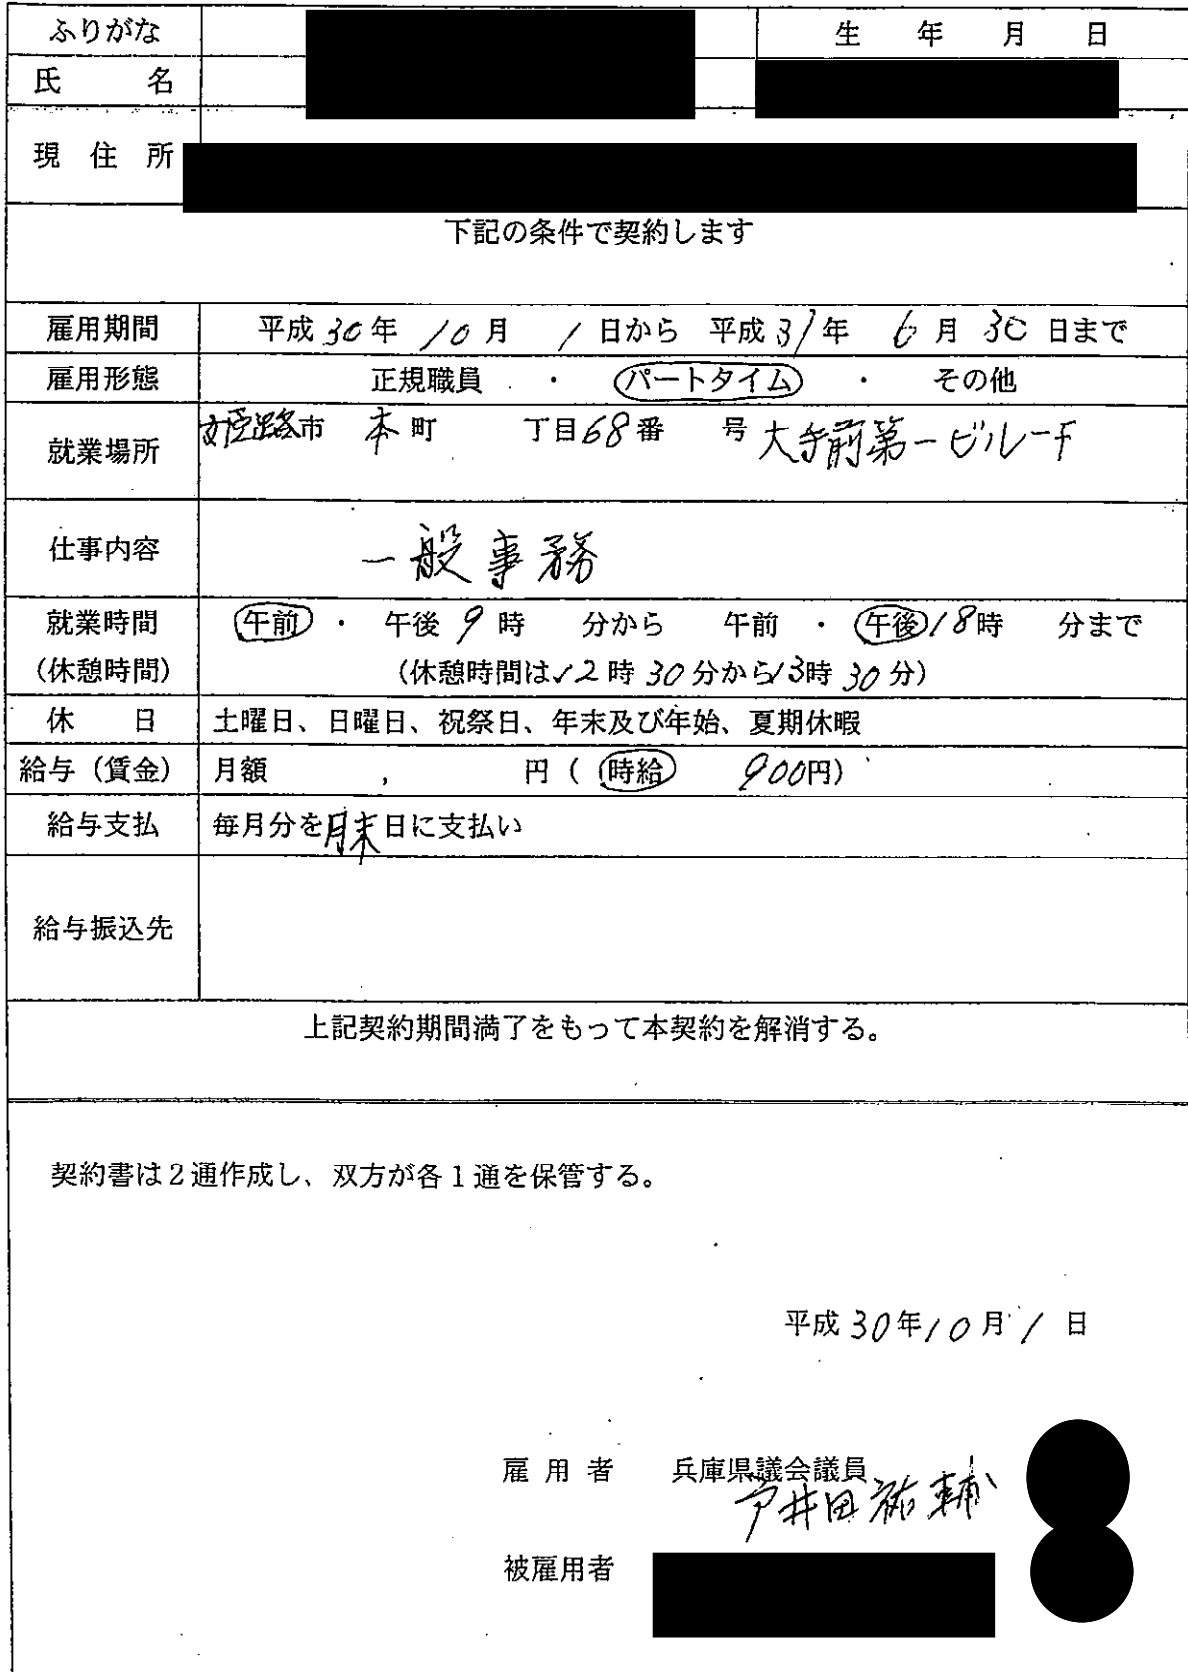 ふりがな
生 年 月 日
氏 名
現 住 所
下記の条件で契約します
雇用期間 平成30年 10月 1日から 平成31年 6月 30日まで
雇用形態 正規職員 ・ パートタイム ・ その他
就業場所 姫路市 本町 丁目68番 号 大手前第一ビル一F
仕事内容 一般事務
就業時間 午前 ・ 午後 9時 分から 午前 ・ 午後18時 分まで
(休憩時間) (休憩時間は12時30分から13時30分)
休 日 土曜日、日曜日、祝祭日、年末及び年始、夏期休暇
給与(賃金) 月額 , 円(時給 900円)
給与支払 毎月分を月末日に支払い
給与振込先
上記契約期間満了をもって本契約を解消する。
契約書は2通作成し、双方が各1通を保管する。
平成30年10月1日
雇 用 者 兵庫県議会議員
戸井田祐輔
被雇用者